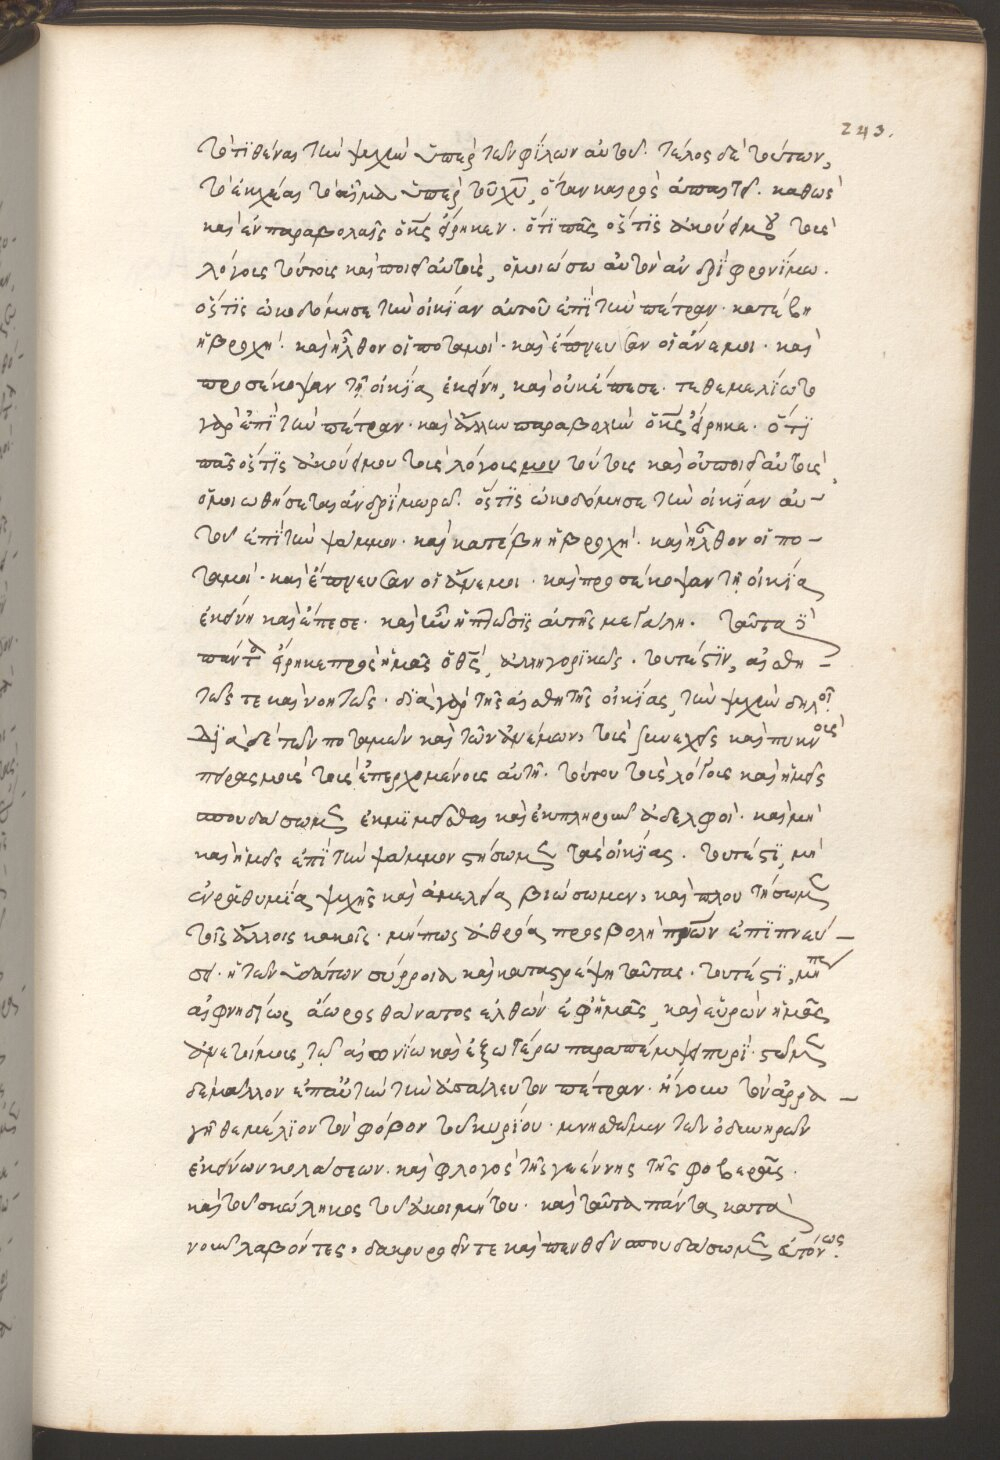 243.
τὸ τϊθέναι τὴν ψυχὴν ὑπὲρ τῶν φίλων αὐτοῦ. τέλος δὲ τούτων,
τὸ ἐκχέαι τὸ αἷμα ὑπὲρ τοῦ χυ, ὅταν καιρὸς ἀπαιτεῖ. καθὼς
καὶ ἐν παραβολαῖς ὁ κς εἴρηκεν. ὅτϊ πᾶς ὅστϊς ἀκούει μου τοὺς
λόγους τούτους καὶ ποιεῖ αὐτοὺς, ὁμοιώσω αὐτὸν ἀνδρϊ φρονίμω.
ὅστϊς ὠκοδόμησε τὴν οἰκίαν αὐτοῦ ἐπϊ τὴν πέτραν. κατέβη
ἡ βροχή. καὶ ἦλθον οἱ ποταμοί. καὶ ἔπνευσαν οἱ ἄνεμοι. καὶ
προσέκοψαν τῆ οἰκία ἐκείνη, καὶ οὐκ ἔπεσε. τεθεμελίωτο
γὰρ ἐπϊ τὴν πέτραν. καὶ ἄλλην παραβολὴν ὁ κς εἴρηκε. ὅτϊ
πᾶς ὅστϊς ἀκούει μου τοὺς λόγους μου τούτους καὶ οὐ ποιεῖ αὐτοὺς,
ὁμοιωθήσεται ἀνδρϊ μωρῶ. ὅστϊς ὠκοδόμησε τὴν οἰκίαν αὐ-
τοῦ ἐπϊ τὴν ψάμμον. καὶ κατέβη ἡ βροχή. καὶ ἦλθον οἱ πο-
ταμοί. καὶ ἔπνευσαν οἱ ἄνεμοι. καὶ προσέκοψαν τῆ οἰκία
ἐκείνη καὶ ἔπεσε. καὶ ἦν ἡ πτῶσϊς αὐτῆς μεγάλη. ταῦτα
πάντα εἴρηκε πρὸς ἡμᾶς ὁ θς, ἀλληγορϊκῶς. τουτέστϊν, αἰσθη-
τῶς τε καὶ νοητῶς. δϊὰ γὰρ τῆς αἰσθητῆς οἰκίας, τὴν ψυχὴν δηλοῖ.
δϊὰ δὲ τῶν ποταμῶν καὶ τῶν ἀνέμων, τοὺς συνεχεῖς καὶ πυκνοὺς
πειρασμοὺς τοὺς ἐπερχομένους αὐτῆ. τούτου τοὺς λόγους καὶ ἡμεῖς
σπουδάσωμεν ἐκμϊμεῖσθαι καὶ ἐκπληροῦν ἀδελφοί. καὶ μὴ
καὶ ἡμεῖς ἐπϊ τὴν ψάμμον στήσωμεν τὰς οἰκίας. τουτέστϊ, μὴ
ἐν ῥαθυμία ψυχῆς καὶ ἀμελεία βιώσωμεν, καὶ πλουτήσωμεν
τοῖς ἄλλοις κακοῖς. μήπως ἀθρόα προσβολὴ πνῶν ἐπϊπνεύ-
σει. ἢ τῶν ὑδάτων σύρροια καὶ καταστρέψη ταύτας. τουτέστϊ, μήπε
αἰφνηδίως ἄωρος θάνατος ἐλθὼν ἐφ' ἡμᾶς, καὶ εὑρὼν ἡμᾶς
ἀνετοίμους, τῶ αἰωνίω καὶ ἐξωτέρω παραπέμψει πυρί. στῶμεν
δὲ μάλλον ἐπ' αὐτὴν τὴν ἀσάλευτον πέτραν. ἤγουν τὸν ἀρρα-
γῆ θεμέλϊον τὸν φόβον τοῦ κυρίου. μνησθῶμεν τῶν ὀδυνηρῶν
ἐκείνων κολάσεων. καὶ φλογὸς τῆς γεέννης τῆς φοβερᾶς.
καὶ τοῦ σκώληκος τοῦ ἀκοιμήτου. καὶ ταῦτα πάντα κατὰ
νοῦν λαβόντες, δακρυρεῖν τε καὶ πενθεῖν σπουδάσωμεν εὐτόνως.